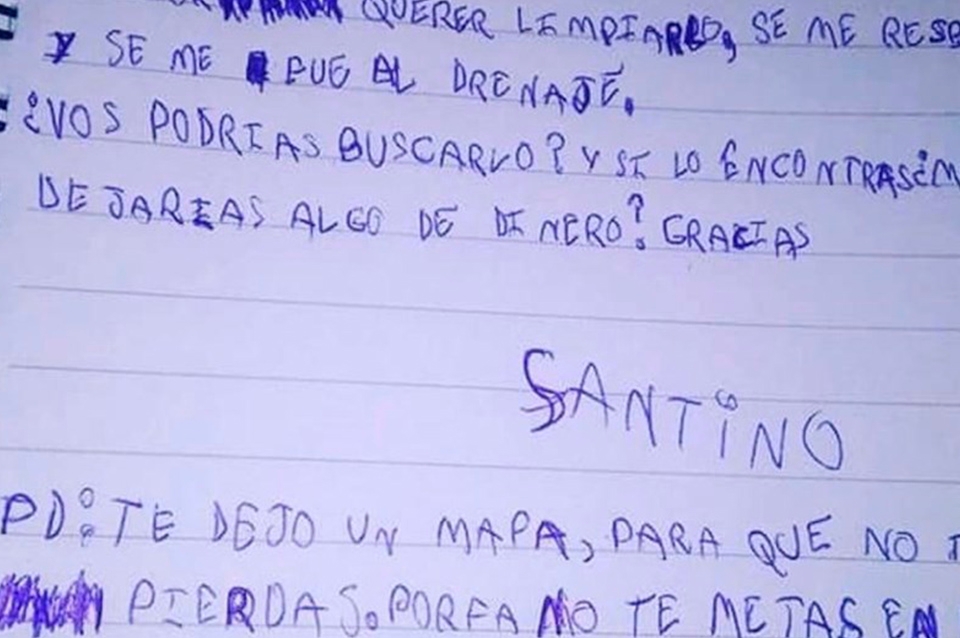 QUERER LIMPIARLO, SE ME
Y SE ME FUE AL DRENAJE.
¿VOS PODRIAS BUSCARLO? Y SI LO ENCONTRAS ¿M
DEJARIAS ALGO DE DINERO? GRACIAS
SANTINO
PD: TE DEJO UN MAPA, PARA QUE NO T
PIERDAS. PORFA NO TE METAS EN